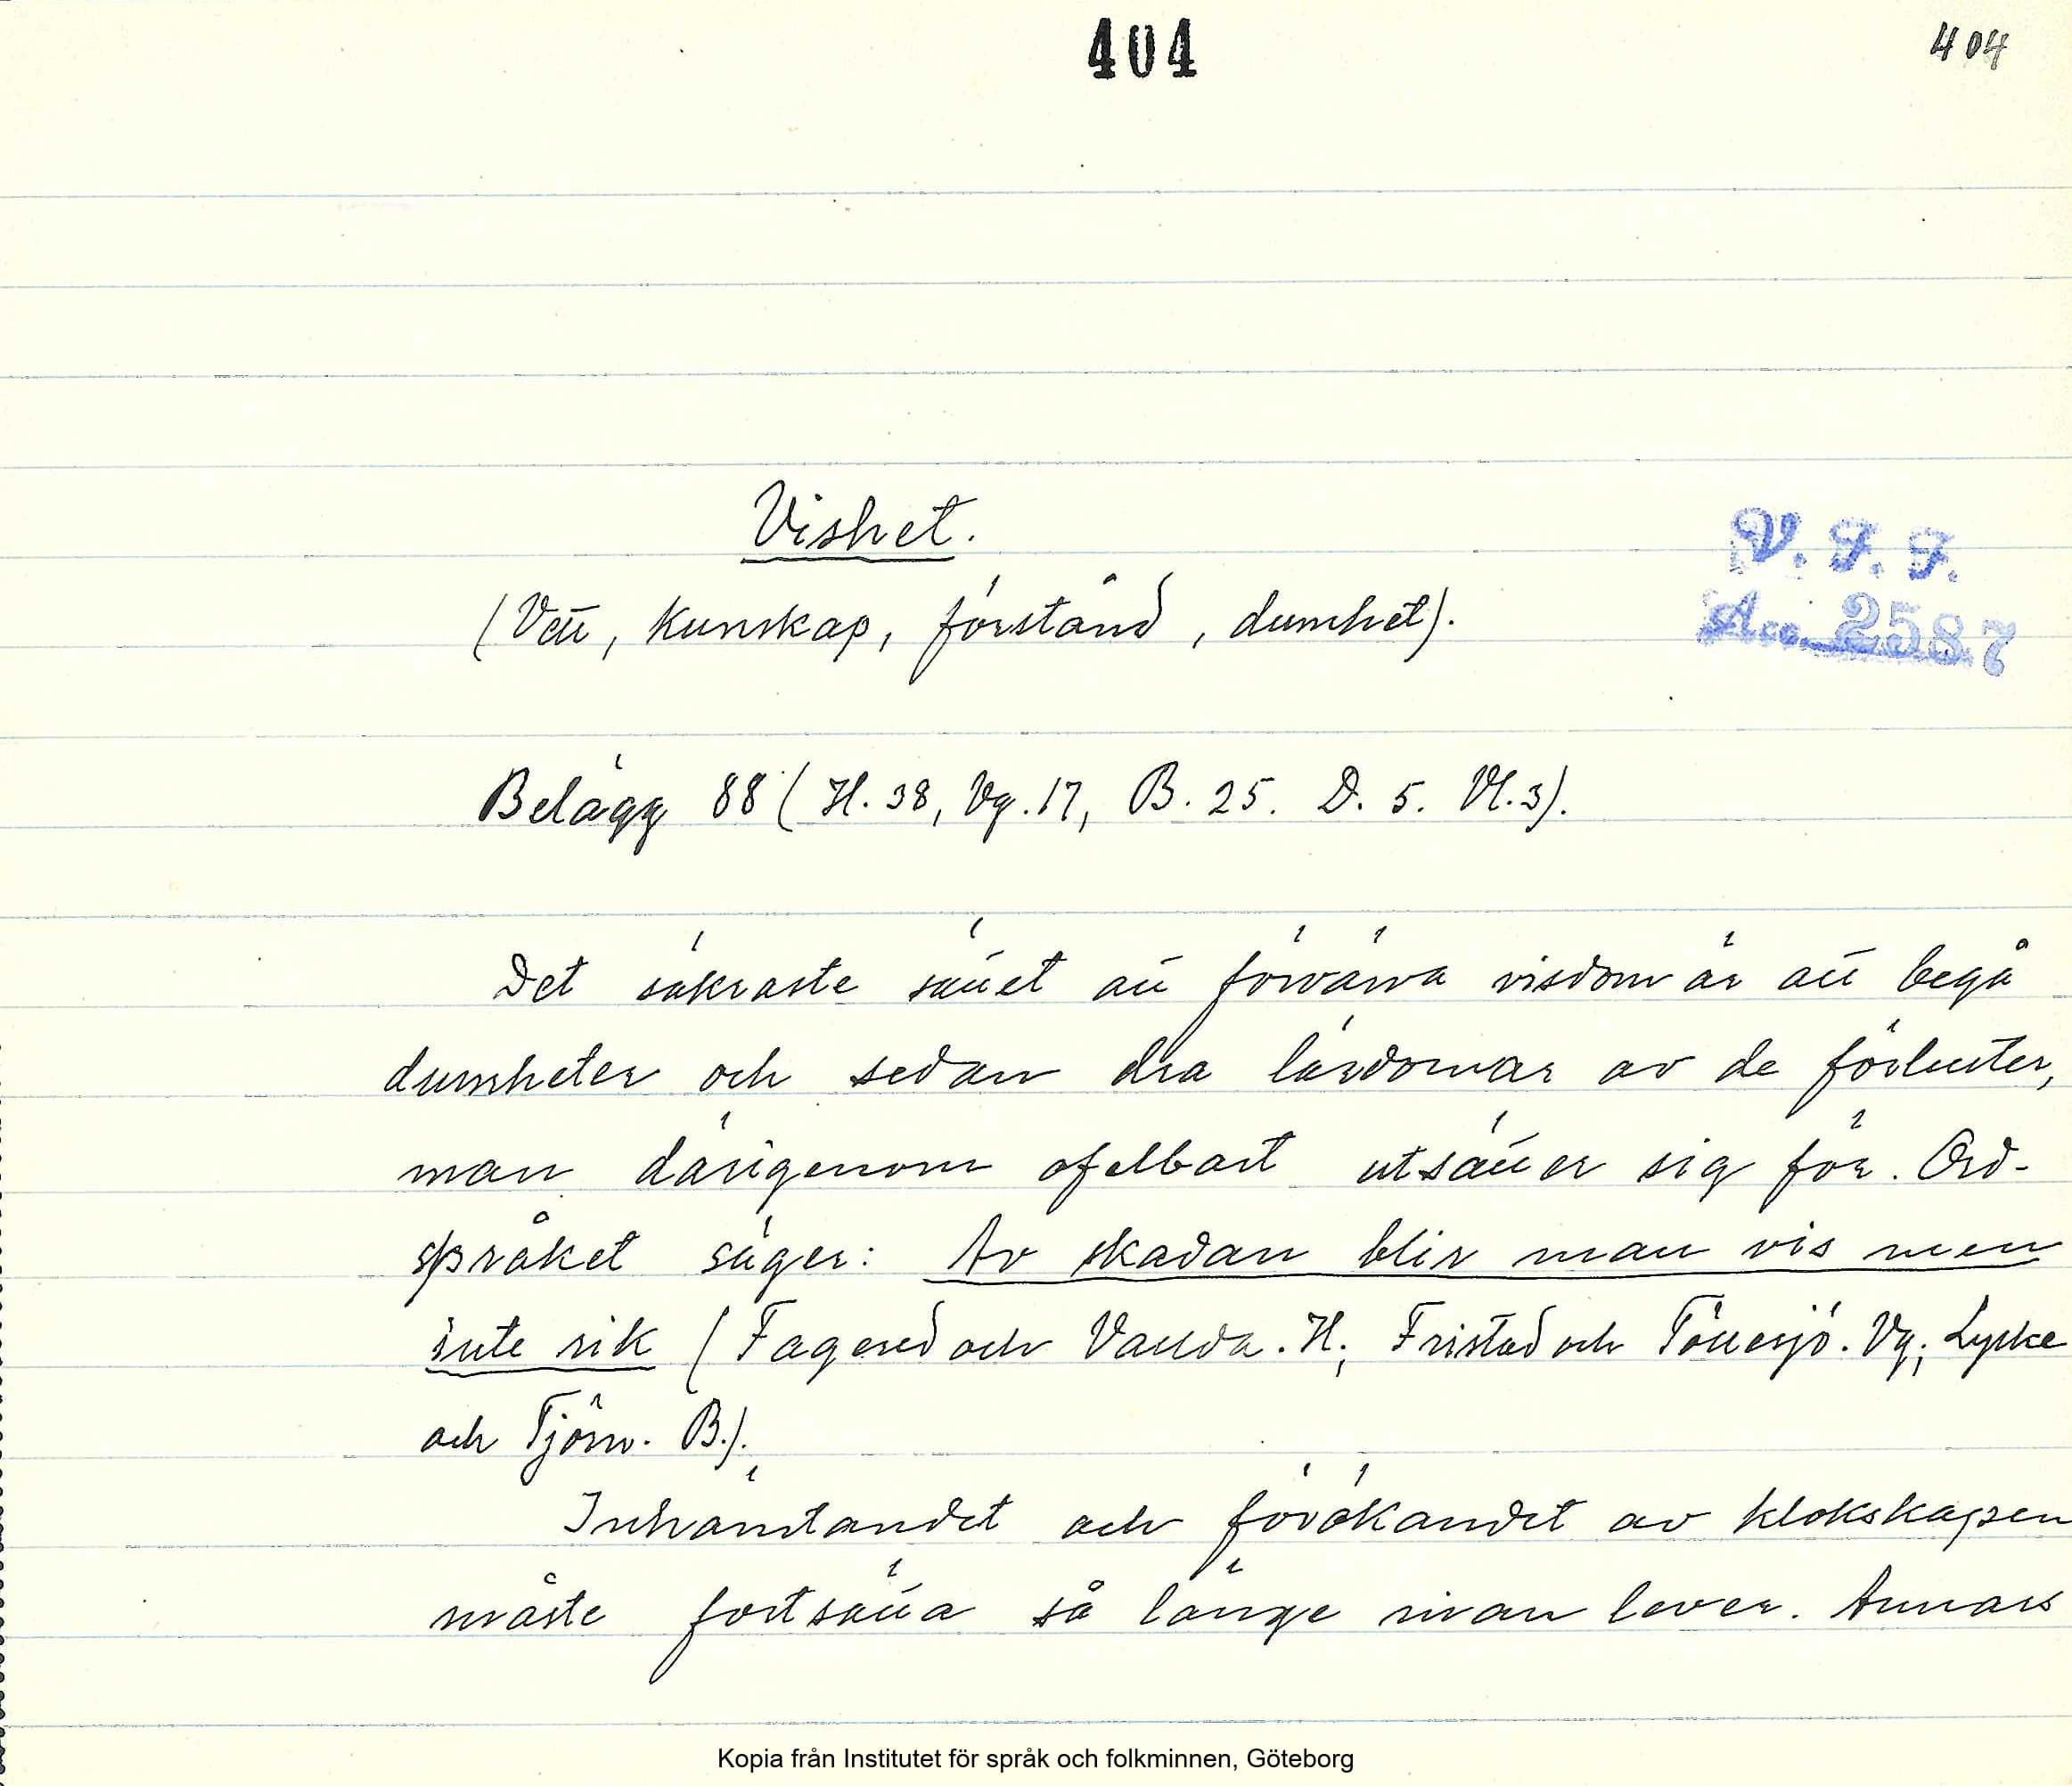 404 404
Vishet.
(Vett, kunskap, förstånd, dumhet).
V. F. F.
Acc. 2587
Belägg 88 (H. 38, Vg. 17, B. 25. D. 5. Vl. 3).
Det säkraste sättet att förvärva visdom är att begå
dumheter och sedan dra lärdomar av de förluster,
man därigenom ofelbart utsätter sig för. Ord-
språket säger: Av skadan blir man vis men
inte rik (Fagered och Vallda. H; Fristad och Töllesjö. Vg; Lycke
och Tjörn. B.).
Inhämtandet och förökandet av klokskapen
måste fortsätta så länge man lever. Annars
Kopia från Institutet för språk och folkminnen, Göteborg